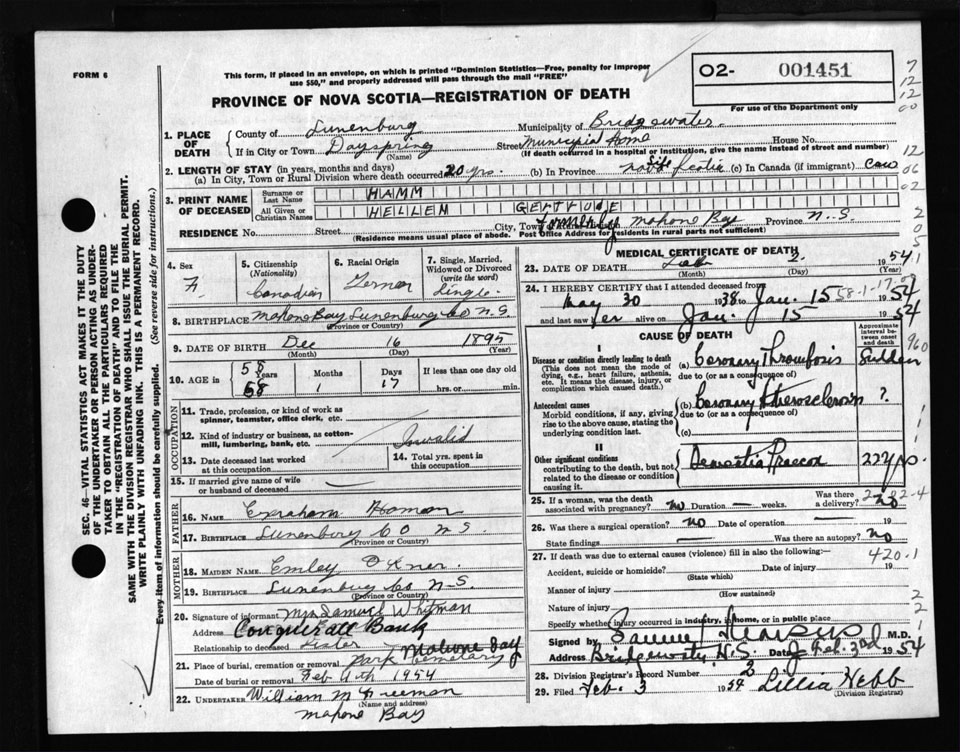 FORM 6
This form, if placed in an envelope, on which is printed "Dominion Statistics—Free, penalty for improper
use $50," and properly addressed will pass through the mail "FREE"
PROVINCE OF NOVA SCOTIA—REGISTRATION OF DEATH
02- 001451
For use of the Department only
7
12
12
00
12
06
02
2
0
5
1. PLACE OF DEATH
County of Lunenburg Municipality of Bridgewater
If in City or Town Dayspring (Name) Street Municipal Home House No.
(If death occurred in a hospital or institution, give the name instead of street and number)
2. LENGTH OF STAY (in years, months and days)
(a) In City, Town or Rural Division where death occurred 20 yrs. (b) In Province Life Nova Scotia (c) In Canada (if immigrant)
3. PRINT NAME OF DECEASED
Surname or Last Name HAMM
All Given or Christian Names HELLEN GERTRUDE
RESIDENCE No. Street City, Town formerly Mahone Bay Province N.S.
(Residence means usual place of abode. Post Office Address for residents in rural parts not sufficient)
4. Sex
F.
5. Citizenship
(Nationality)
Canadian
6. Racial Origin
German
7. Single, Married, Widowed or Divorced
(write the word)
Single
8. BIRTHPLACE Mahone Bay Lunenburg Co N.S.
(Province or Country)
9. DATE OF BIRTH Dec 16 1895
(Month) (Day) (Year)
10. AGE in
58
Years Months Days If less than one day old
58 1 17 hrs. or min.
OCCUPATION
11. Trade, profession, or kind of work as
spinner, teamster, office clerk, etc.
12. Kind of industry or business, as cotton-
mill, lumbering, bank, etc. Invalid
13. Date deceased last worked
at this occupation
14. Total yrs. spent in
this occupation
15. If married give name of wife
or husband of deceased —
FATHER
16. Name Haman
17. Birthplace Lunenburg Co N.S.
(Province or Country)
MOTHER
18. Maiden Name Emley
19. Birthplace Lunenburg Co N-S
(Province or Country)
20. Signature of informant Mrs Samuel Whitman
Address Conquerall Bank
Relationship to deceased Sister
21. Place of burial, cremation or removal Park Cemetary Mahone Bay
Date of burial or removal Feb 4th 1954
22. UNDERTAKER William M Freeman
(Name and address)
Mahone Bay
MEDICAL CERTIFICATE OF DEATH
23. DATE OF DEATH Feb 2. 1954
(Month) (Day) (Year)
24. I HEREBY CERTIFY that I attended deceased from
May 30 1938 to Jan. 15 1954
and last saw her alive on Jan. 15 1954
58-1-17
CAUSE OF DEATH
Approximate interval between onset and death
I
Disease or condition directly leading to death
(This does not mean the mode of dying, e.g., heart failure, asthenia, etc. It means the disease, injury, or complication which caused death.)
(a) Coronary Thrombosis Sudden
due to (or as a consequence of)
Antecedent causes
Morbid conditions, if any, giving rise to the above cause, stating the underlying condition last.
(b) Coronary Atherosclerosis ?
due to (or as a consequence of)
(c)
II
Other significant conditions
contributing to the death, but not related to the disease or condition causing it.
Dementia Praecox 22 yrs.
25. If a woman, was the death
associated with pregnancy? no Duration — weeks. Was there a delivery? no
26. Was there a surgical operation? no Date of operation — 19
State findings — Was there an autopsy? no
27. If death was due to external causes (violence) fill in also the following:—
420.1
Accident, suicide or homicide? Date of injury 19
(State which)
Manner of injury
(How sustained)
Nature of injury
Specify whether injury occurred in industry, in home, or in public place
Signed by M.D.
Address Bridgewater, N.S. Date Feb. 3rd 1954
28. Division Registrar's Record Number 2
29. Filed Feb. 3 1954 Lillia Webb
(Division Registrar)
SEC. 46—VITAL STATISTICS ACT MAKES IT THE DUTY
OF THE UNDERTAKER OR PERSON ACTING AS UNDER-
TAKER TO OBTAIN ALL THE PARTICULARS REQUIRED
IN THE "REGISTRATION OF DEATH" AND TO FILE THE
SAME WITH THE DIVISION REGISTRAR WHO SHALL ISSUE THE BURIAL PERMIT.
WRITE PLAINLY WITH UNFADING INK. THIS IS A PERMANENT RECORD.
Every item of information should be carefully supplied. (See reverse side for instructions.)